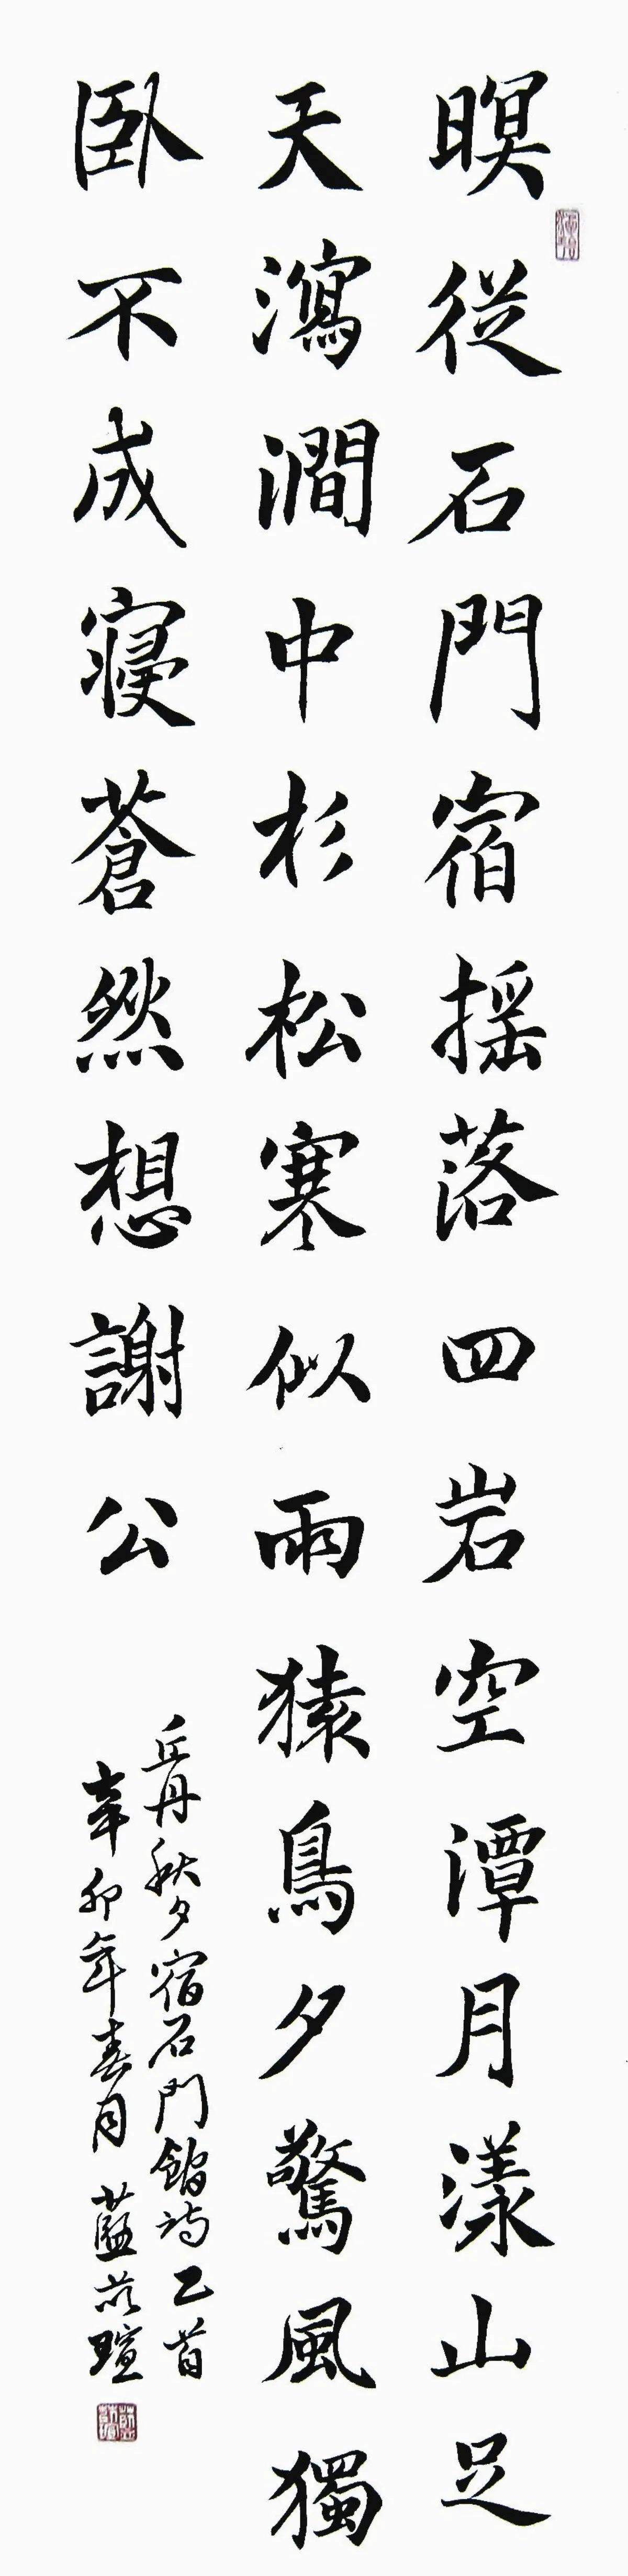 暝從石門宿揺落四岩空潭月漾山足
天瀉澗中杉松寒似雨猿鳥夕驚風獨
臥不成寝蒼然想謝公
丘丹秋夕宿石門館詩乙首
辛卯年春月藍芯瑄